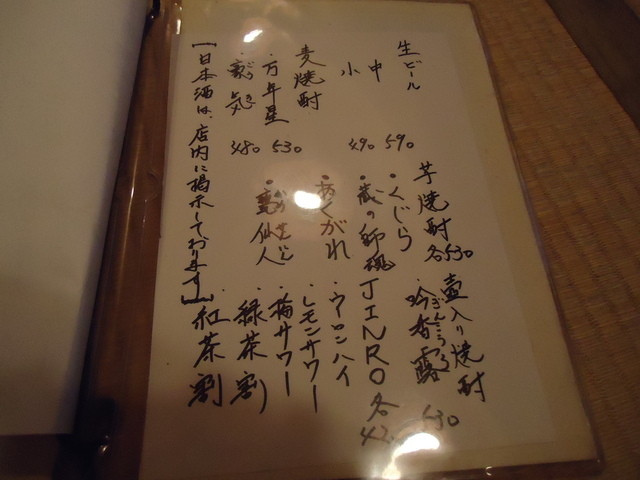 生ビール
中 590
小 490
麦焼酎
・万年星 530
・豪気 480
【日本酒は、店内に掲示しております】
芋焼酎 各530
・くじら
・蔵の師魂
・あくがれ
仙人
壷入り焼酎
・吟香露 530
ぎんこうろ
JINRO 各
・ウーロンハイ
・レモンサワー
・梅サワー
・緑茶割
・紅茶割